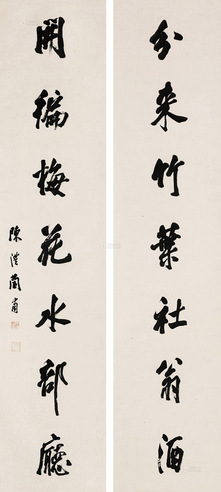 分来竹葉社翁酒
開編梅花水部廳
陳澧蘭甫